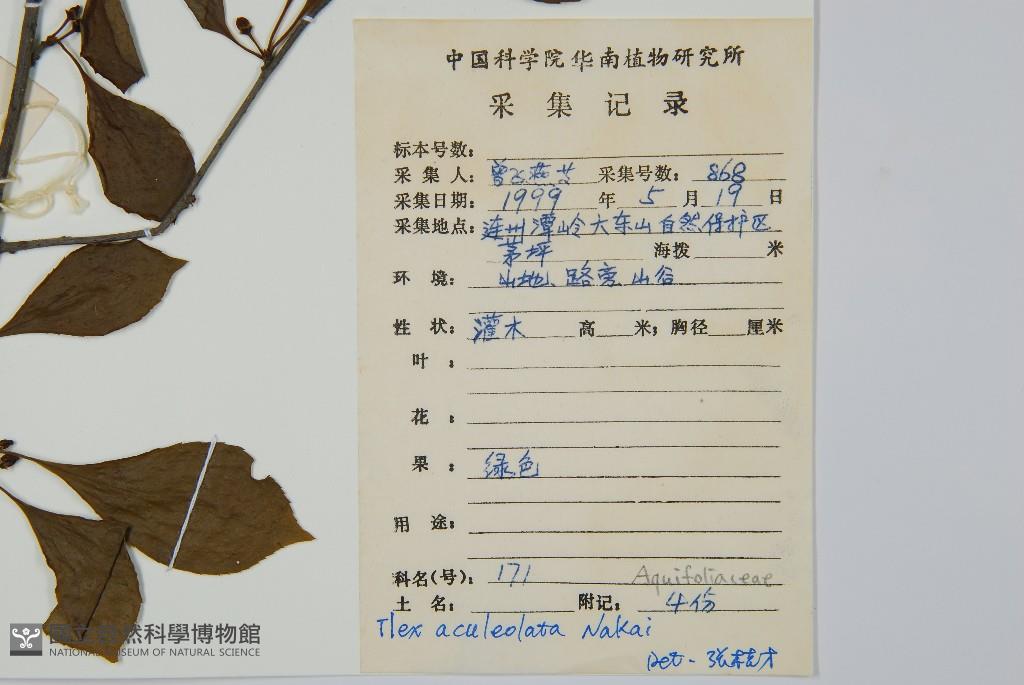 中国科学院华南植物研究所
采集记录
标本号数：
采集人：曾飞燕等 采集号数：868
采集日期：1999年5月19日
采集地点：连州潭岭大东山自然保护区
茅坪 海拨 米
环境：山地、路旁 山谷
性状：灌木 高 米；胸径 厘米
叶：
花：
果：绿色
用途：
科名(号)：171 Aquifoliaceae
土名： 附记：4份
Ilex aculeolata Nakai
Det. 张桂才
國立自然科學博物館
NATIONAL MUSEUM OF NATURAL SCIENCE